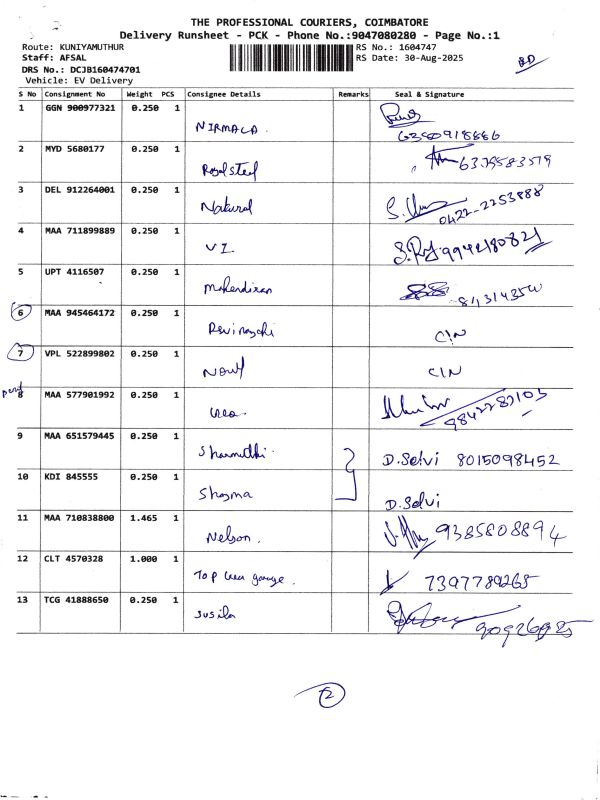 THE PROFESSIONAL COURIERS, COIMBATORE
Delivery Runsheet - PCK - Phone No.:9047080280 - Page No.:1
Route: KUNIYAMUTHUR RS No.: 1604747
Staff: AFSAL RS Date: 30-Aug-2025
DRS No.: DCJB160474701
Vehicle: EV Delivery
S No Consignment No Weight PCS Consignee Details Remarks Seal & Signature
1 GGN 900977321 0.250 1
NIRMALA. 6380918886
2 MYD 5680177 0.250 1
Royal steel 6379583579
3 DEL 912264001 0.250 1
Natural 0422-2253888
4 MAA 711899889 0.250 1
V I. 9942180821
5 UPT 4116507 0.250 1
Mahendiran
6 MAA 945464172 0.250 1
C/N
7 VPL 522899802 0.250 1
C/N
8 MAA 577901992 0.250 1
9842287103
9 MAA 651579445 0.250 1
Sharmithi. D. Selvi 8015098452
10 KDI 845555 0.250 1
D. Selvi
11 MAA 710838800 1.465 1
Nelson. 9385808894
12 CLT 4570328 1.000 1
Top gauge. 7397789265
13 TCG 41888650 0.250 1
Susila
2